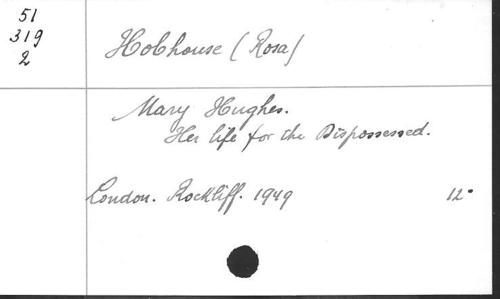 51
319
2
Hobhouse (Rosa)
Mary Hughes.
Her life for the Dispossessed.
London. Rockliff. 1949 12°